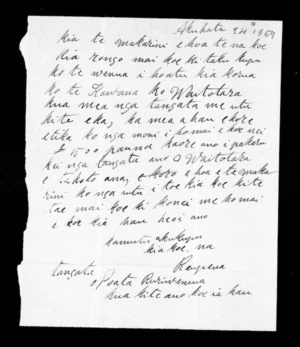 Akuhata 24 1869
kia te makarini e hoa tena koe
kia rongo mai koe ki taku kupu
ko te wenua i hoatu kia korua
ko te Kawana ko Waitotara
kua mea nga tangata me utu
kite eka, ka mea ahau ekore
etika ko nga moni i homai e koe nei
£ 500 pauna kaore ano i pakaru
kei nga tangata ano o Waitotara
e takoto ana, e hoa e te maka
rini ko nga utu i toe kia koe kite
tae mai koe ki konei me homai
e koe kia hau heoi ano
kamutu aku kupu
kia koe na
Reupena
tangata
o Poata
kua kite ano koe ia hau